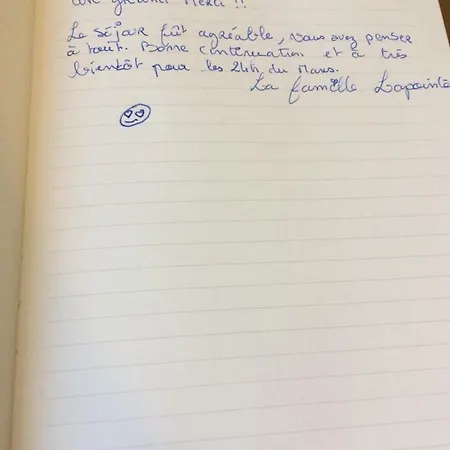 une grande Merci !!
Le séjour fût agréable, vous avez penser
à tout. Bonne continuation et à très
bientôt pour les 24h du Mans.
La famille Lapointe